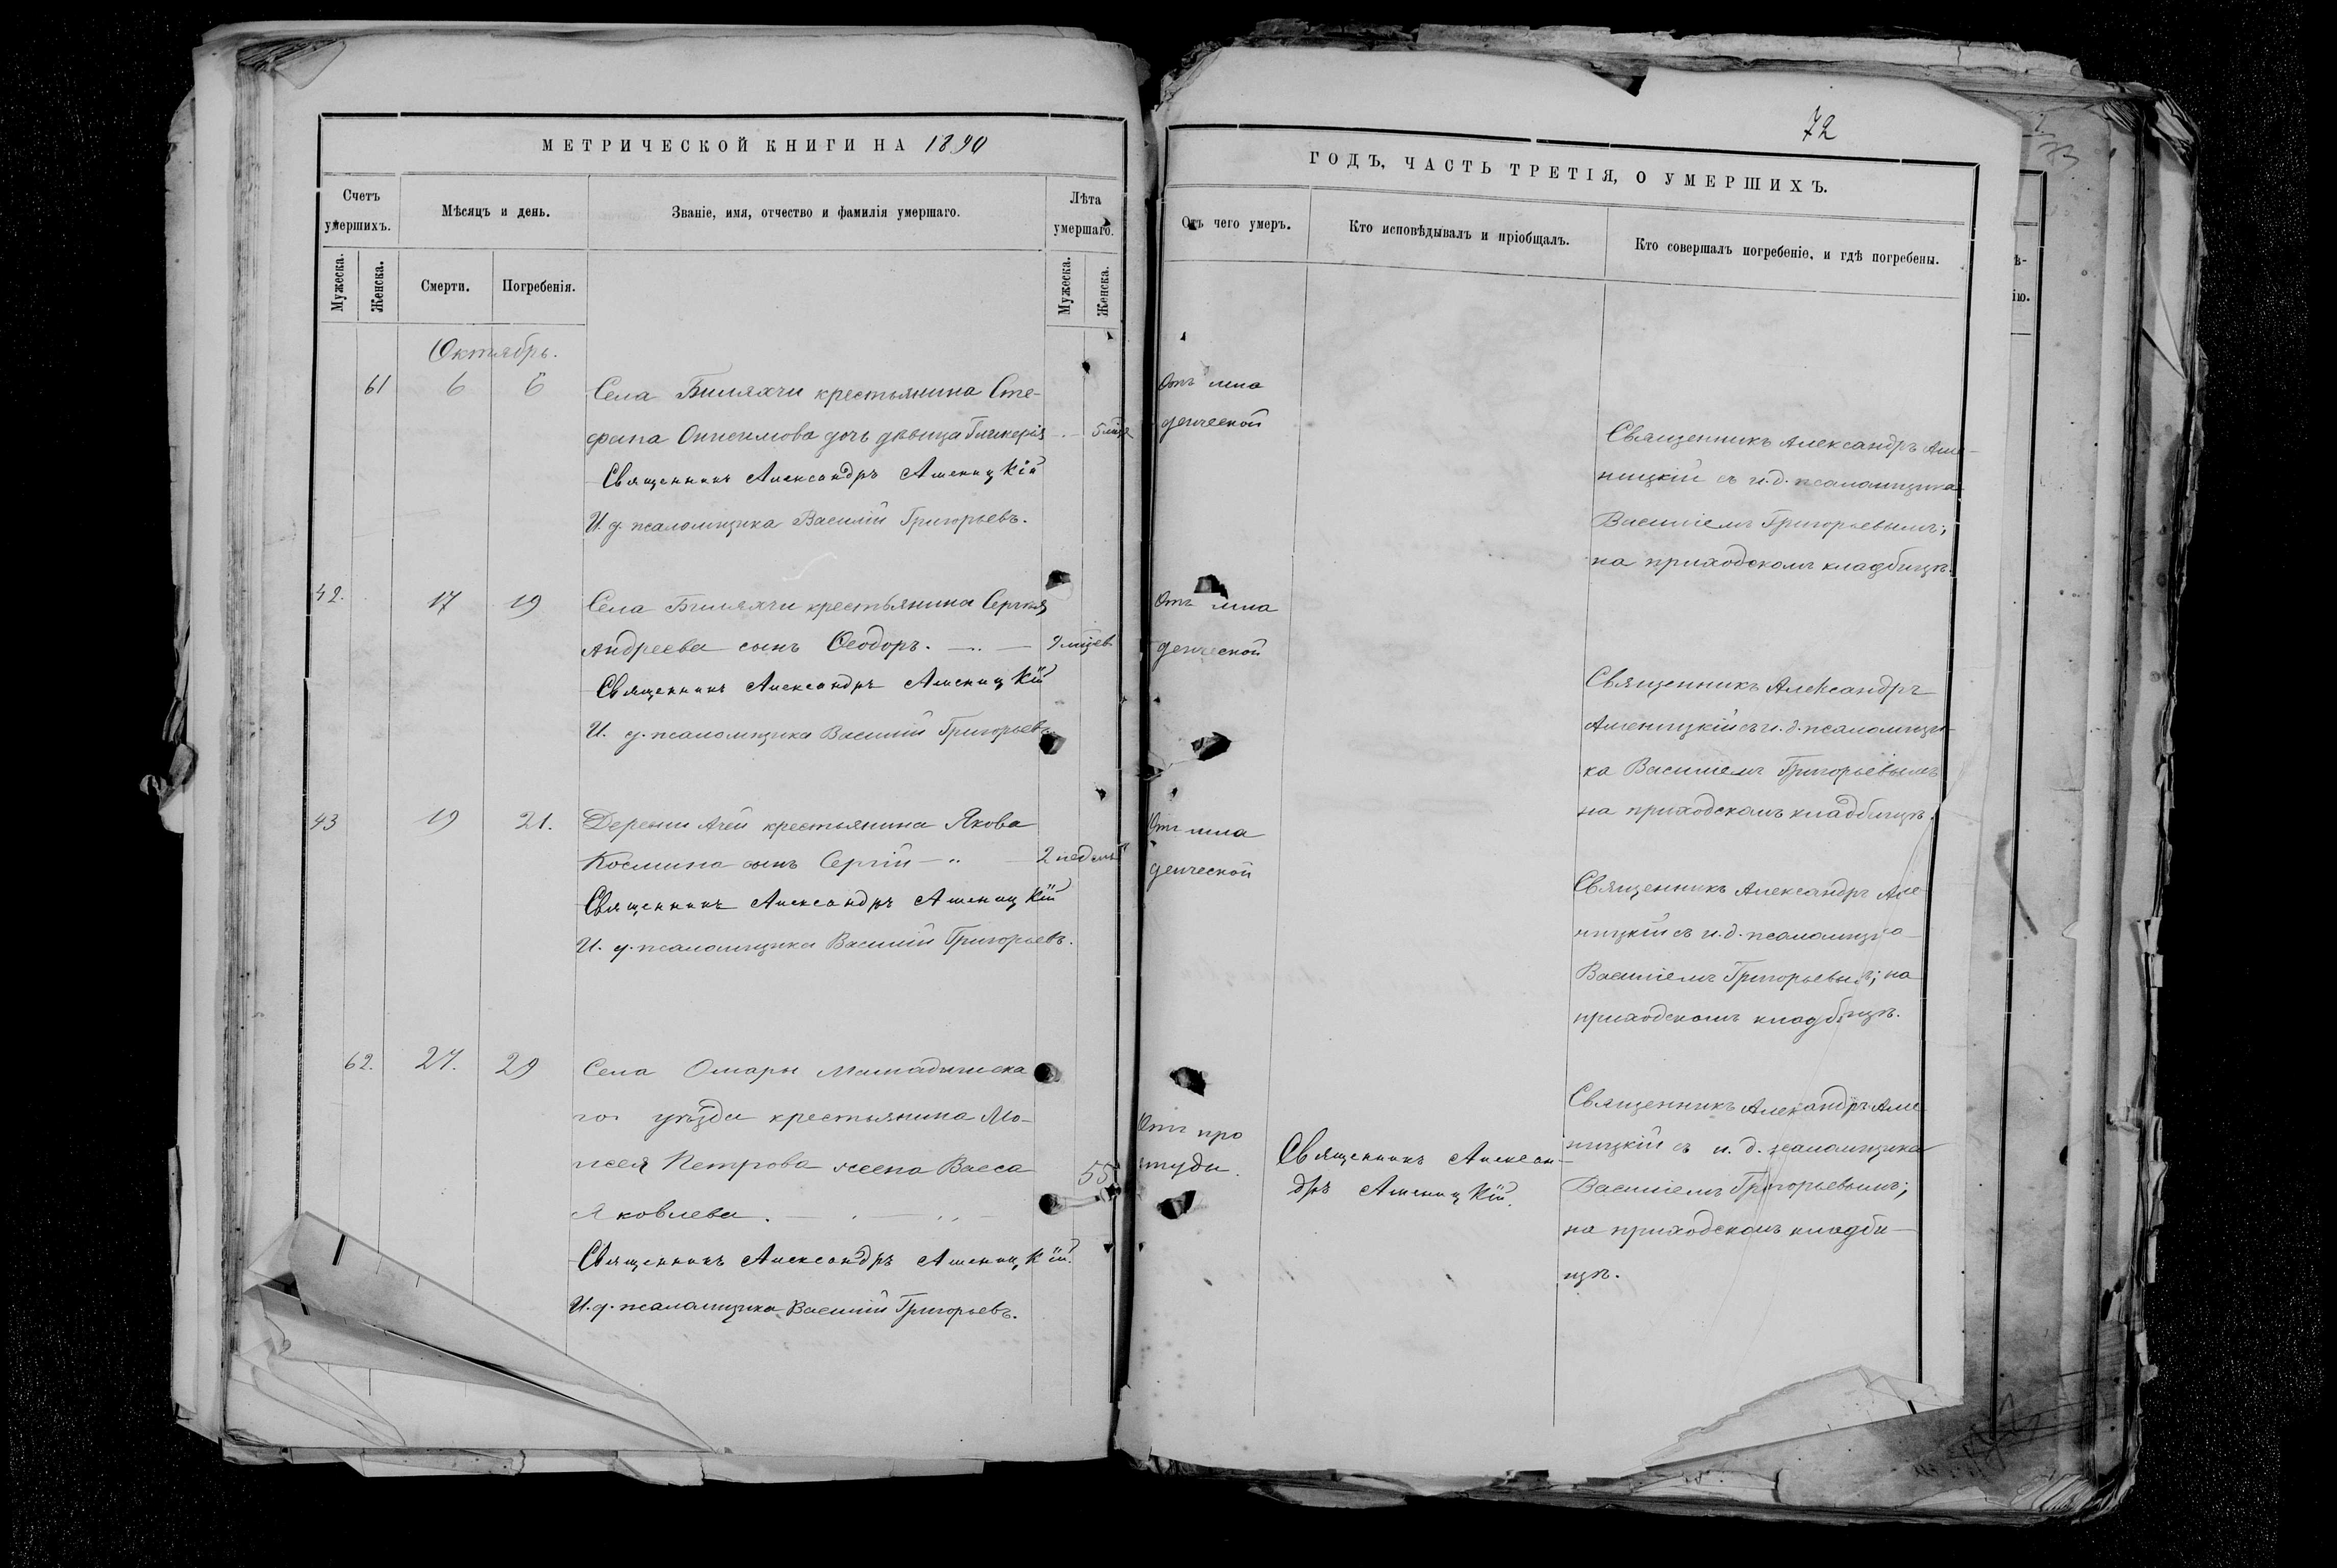 МЕТРИЧЕСКОЙ КНИГИ НА 1890
Счетъ умершихъ.
Мѣсяцъ и день.
Званіе, имя, отчество и фамилія умершаго.
Лѣта умершаго.
Мужеска.
Женска.
Смерти.
Погребенія.
Мужеска.
Женска.
Октябрь.
61 6 6 Села Биляхчи крестьянина Сте-
фана Онисимова дочь дѣвица Гликерія
Священникъ Александръ Аменицкій
И. д. псаломщика Василій Григорьевъ.
42. 17 19 Села Биляхчи крестьянина Сергѣя
Андреева сынъ Ѳеодоръ.
Священникъ Александръ Аменицкій
И. д. псаломщика Василій Григорьевъ
43 19 21. Деревни Ачей крестьянина Якова
Космина сынъ Сергій 2 недель
Священникъ Александръ Аменицкій
И. д. псаломщика Василій Григорьевъ.
62. 27. 29 Села Омары Мамадышска
го уѣзда крестьянина Мо-
исея Петрова жена Васса 55
Яковлева.
Священникъ Александръ Аменицкій.
И. д. псаломщика Василій Григорьевъ.
72
ГОДЪ, ЧАСТЬ ТРЕТІЯ, О УМЕРШИХЪ.
Отъ чего умеръ.
Кто исповѣдывалъ и пріобщалъ.
Кто совершалъ погребеніе, и гдѣ погребены.
Отъ мла
денческой
Священникъ Александръ Аме-
ницкій съ и. д. псаломщика
Василіемъ Григорьевымъ;
на приходскомъ кладбищѣ.
Отъ мла
денческой
Священникъ Александръ
Аменицкій съ и. д. псаломщи-
ка Василіемъ Григорьевымъ
на приходскомъ кладбищѣ.
Отъ мла
денческой
Священникъ Александръ Аме
ницкій съ и. д. псаломщика
Василіемъ Григорьевымъ; на
приходскомъ кладбищѣ.
Отъ про
студы.
Священникъ Алексан-
дръ Аменицкій.
Священникъ Александръ Аме
ницкій съ и. д. псаломщика
Василіемъ Григорьевымъ;
на приходскомъ кладби-
щѣ.